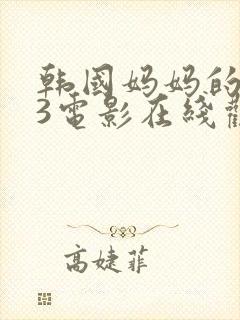 韩国妈妈的
3電影在綫
高婕菲